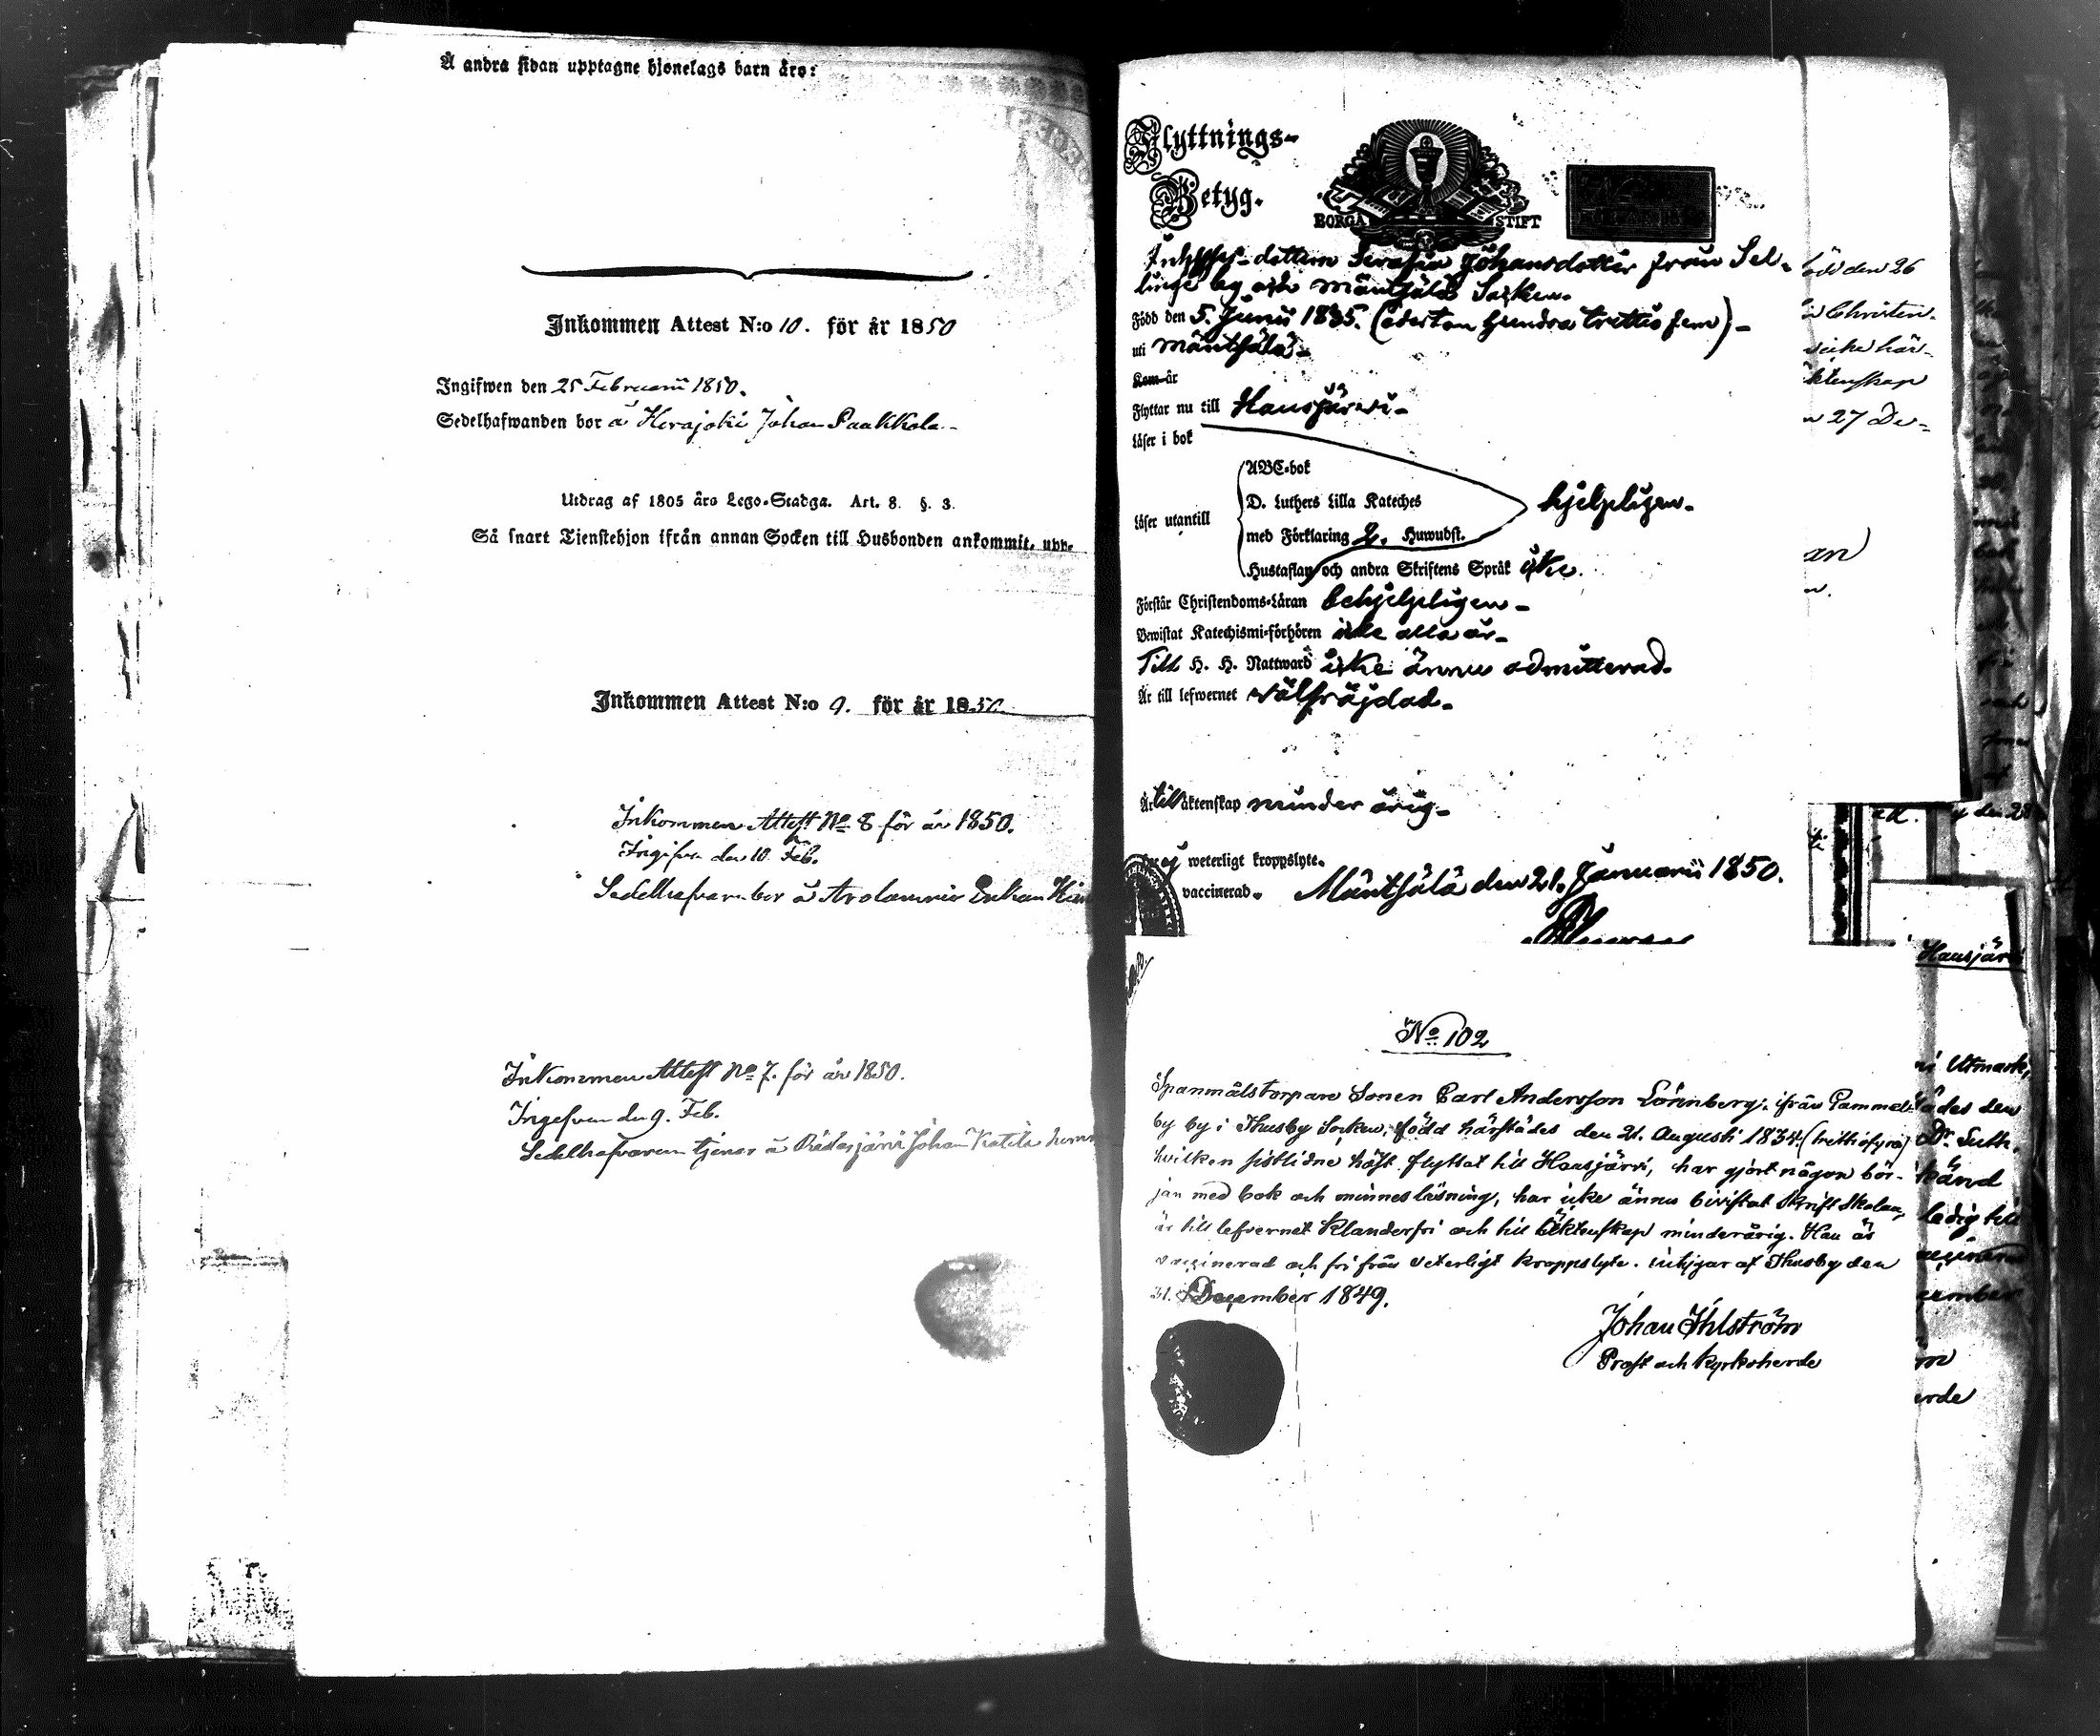 Å andra sidan upptagne hjonelags barn äro:
Inkommen Attest N:o 10. för år 1850
Ingifwen den 25 Februarii 1850.
Sedelhafwanden bor å Herajoki Johan Paakkola
Utdrag af 1805 års Lego-Stadga. Art. 8. §. 3.
Så snart Tienstehjon ifrån annan Socken till Husbonden ankommit, upp-
Inkommen Attest N:o 9. för år 1850
Inkommen Attest No 8 för år 1850.
Ingifven den 10. Feb.
Sedelhafvaren bor å Arolammi
Inkommen Attest No 7. för år 1850.
Ingifven den 9. Feb.
Sedelhafvaren tjenar å Johan
Flyttnings-
Betyg.
BORGÅ STIFT
dottern Serafia Johansdotter från Sel-
linge by och Mäntsälä Socken.
Född den 5. Junii 1835. (Aderton hundra trettio fem)-
uti Mäntsälä-
Kom år
Flyttar nu till Hausjärvi-
Läser i bok
ABC-bok
D. Luthers Lilla Kateches
hjelpligen.
läser utantill
med Förklaring 2. Huwudst.
Hustaflan och andra Skriftens Språk icke.
Förstår Christendoms-Läran behjelpligen-
Bewistat Katechismi-förhören icke alla år-
Till H. H. Nattward icke ännu admitterad.
Är till lefwernet välfräjdad.
Är till äktenskap minderårig-
weterligt kroppslyte.
vaccinerad. Mäntsälä den 21. Januarii 1850.
No 102
Spanmålstorpare Sonen Carl Andersson Lönnberg, ifrån Gammel-
by by i Thusby Socken, född härstädes den 21. Augusti 1834 (trettiofyra)
hvilken sistlidne höst flyttat till Hausjärvi, har gjort någon bör-
jan med bok och minnesläsning, har icke ännu bivistat Skriftskolan,
är till lefvernet klanderfri och till äktenskap minderårig. Han är
vaccinerad och fri från veterligt kroppslyte. intygar af Thusby den
31. December 1849.
Johan Ihlström
Prost och kyrkoherde
den 26
Christen-
här-
27 De-
Hausjärvi
Utmark,
den
Dr. Luth.
ledig till